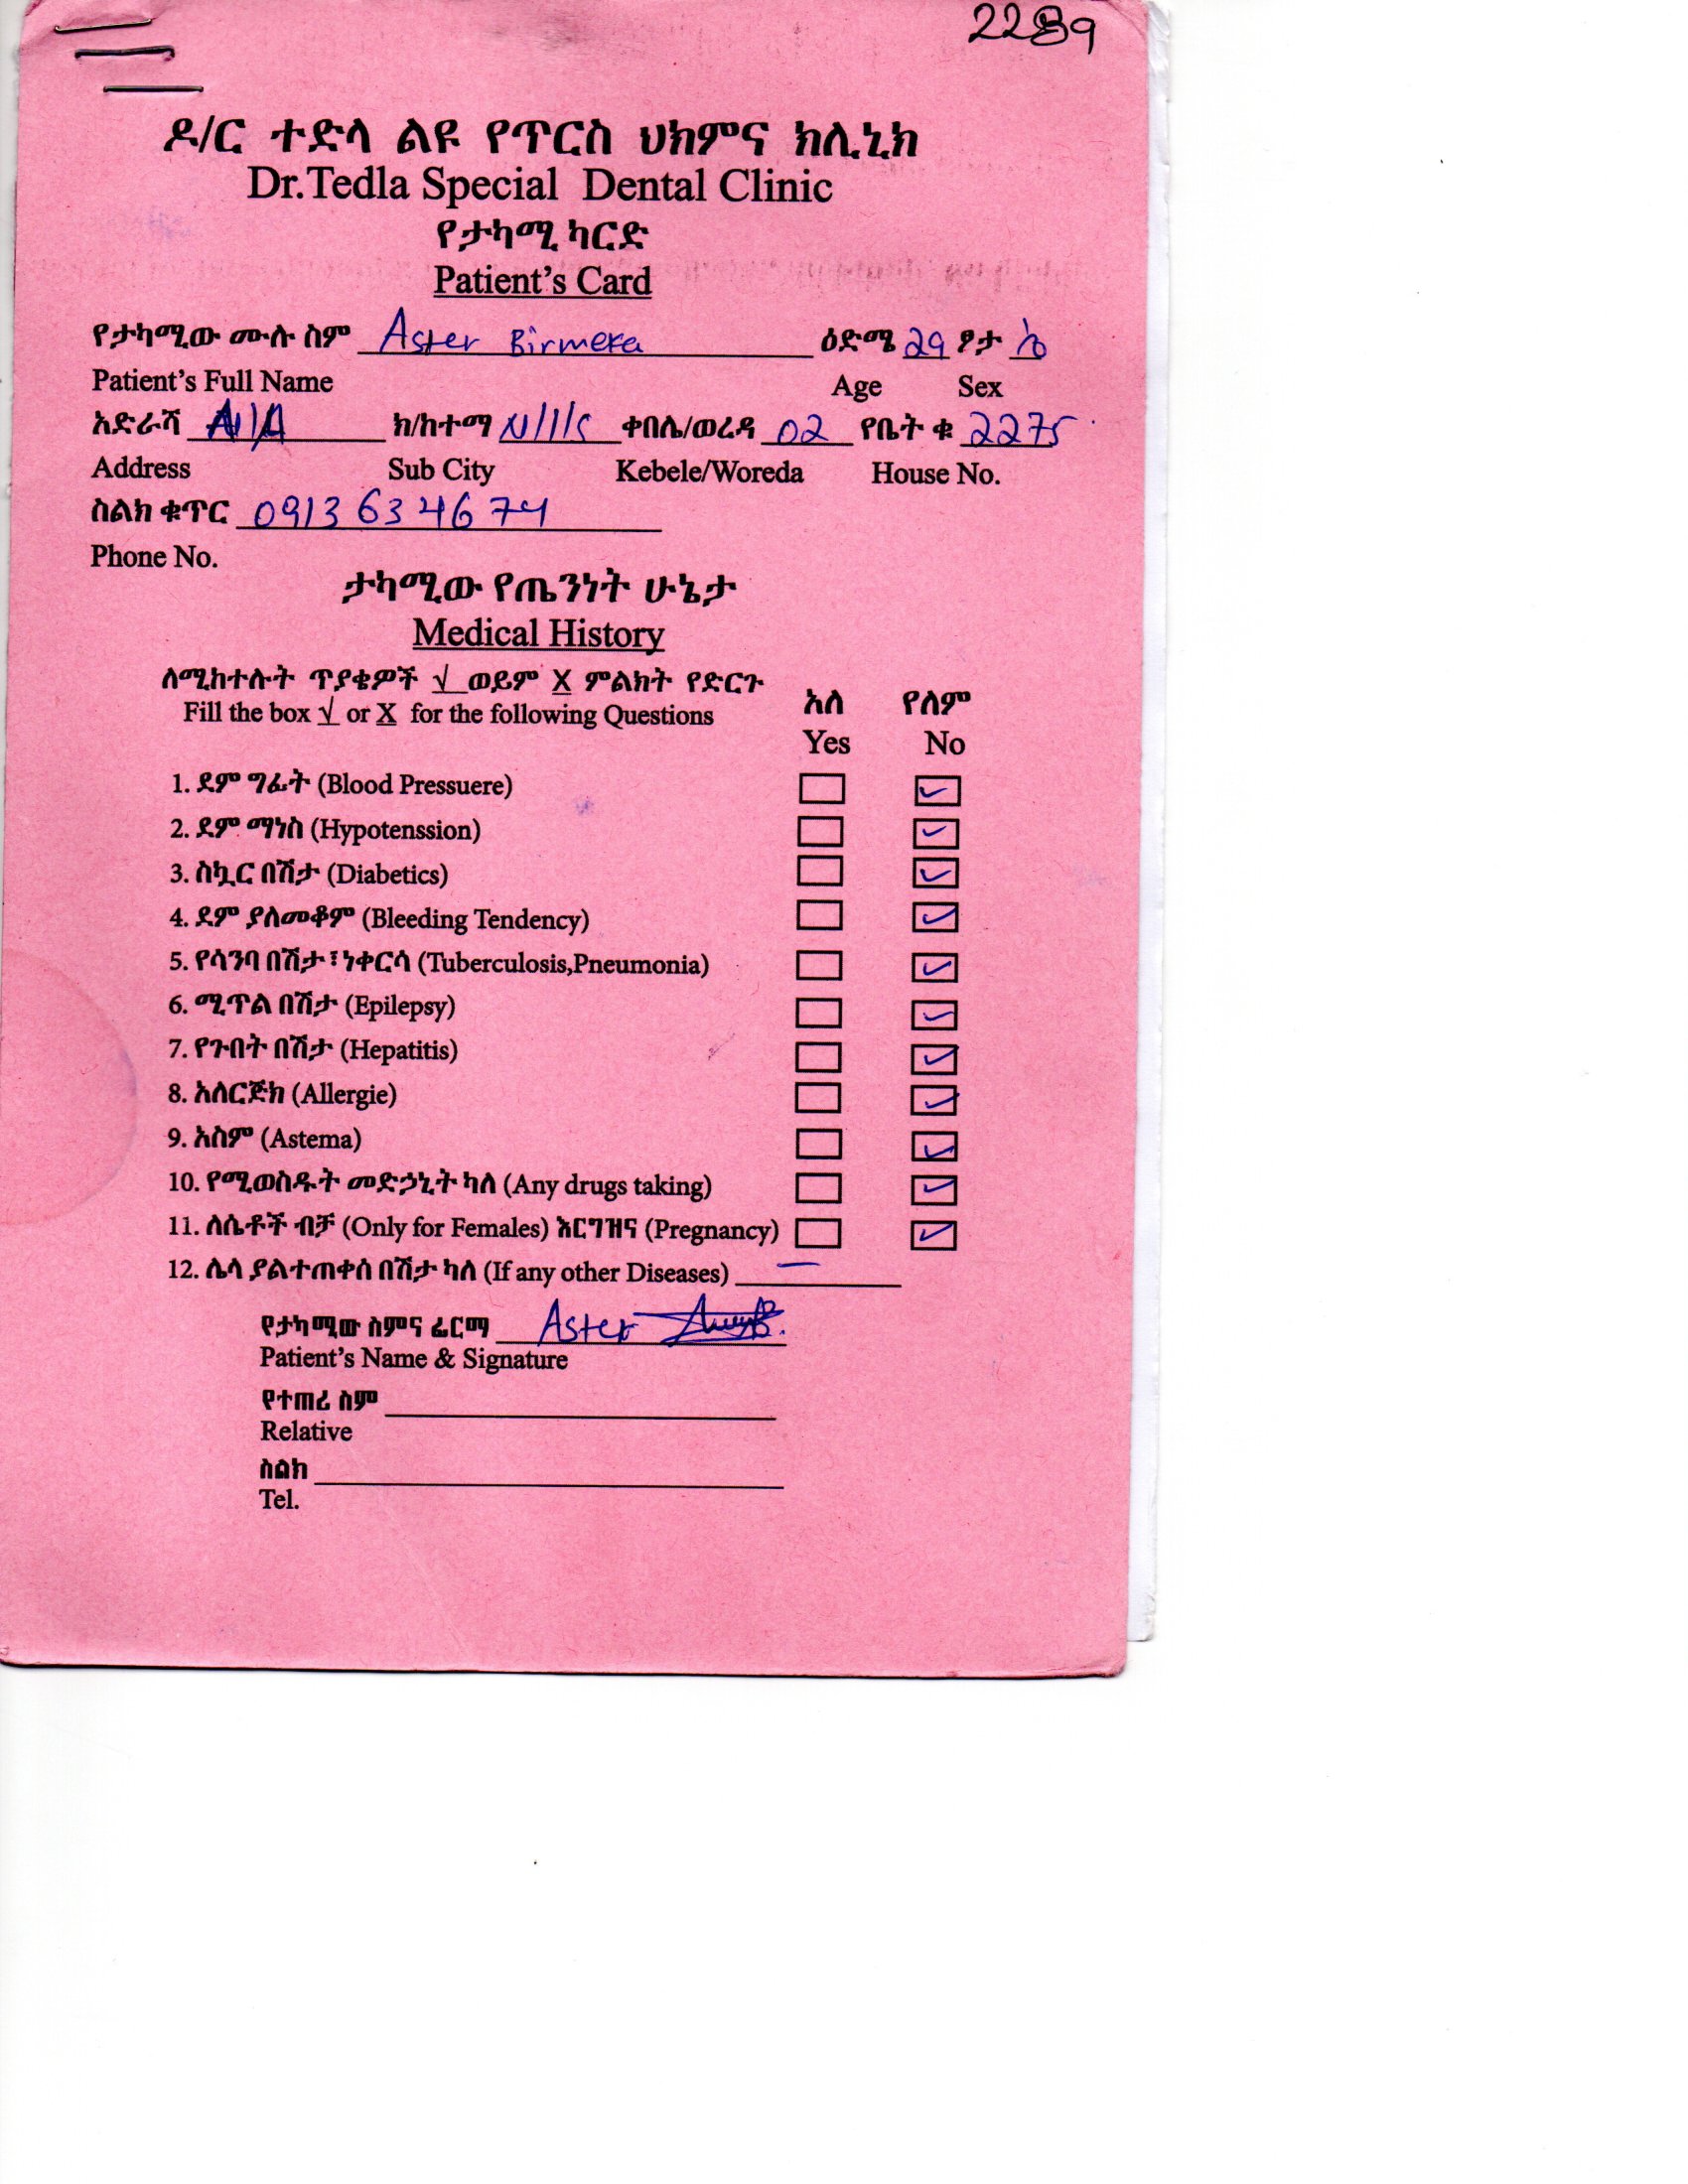 2289
ዶ/ር ተድላ ልዩ የጥርስ ህክምና ክሊኒክ
Dr.Tedla Special Dental Clinic
የታካሚ ካርድ
Patient's Card
የታካሚው ሙሉ ስም Aster Birmeka ዕድሜ 29 ፆታ
Patient's Full Name Age Sex
አድራሻ A/A ክ/ከተማ N/l/S ቀበሌ/ወረዳ 02 የቤት ቁ 2275
Address Sub City Kebele/Woreda House No.
ስልክ ቁጥር 0913 63 46 74
Phone No.
ታካሚው የጤንነት ሁኔታ
Medical History
ለሚከተሉት ጥያቄዎች √ ወይም X ምልክት የድርጉ
Fill the box √ or X for the following Questions
አለ የለም
Yes No
1. ደም ግፊት (Blood Pressuere) ✓
2. ደም ማነስ (Hypotenssion) ✓
3. ስኳር በሽታ (Diabetics) ✓
4. ደም ያለመቆም (Bleeding Tendency) ✓
5. የሳንባ በሽታ፣ነቀርሳ (Tuberculosis,Pneumonia) ✓
6. ሚጥል በሽታ (Epilepsy) ✓
7. የጉበት በሽታ (Hepatitis) ✓
8. አለርጅክ (Allergie) ✓
9. አስም (Astema) ✓
10. የሚወስዱት መድኃኒት ካለ (Any drugs taking) ✓
11. ለሴቶች ብቻ (Only for Females) እርግዝና (Pregnancy) ✓
12. ሌላ ያልተጠቀሰ በሽታ ካለ (If any other Diseases) —
የታካሚው ስምና ፊርማ Aster
Patient's Name & Signature
የተጠሪ ስም
Relative
ስልክ
Tel.